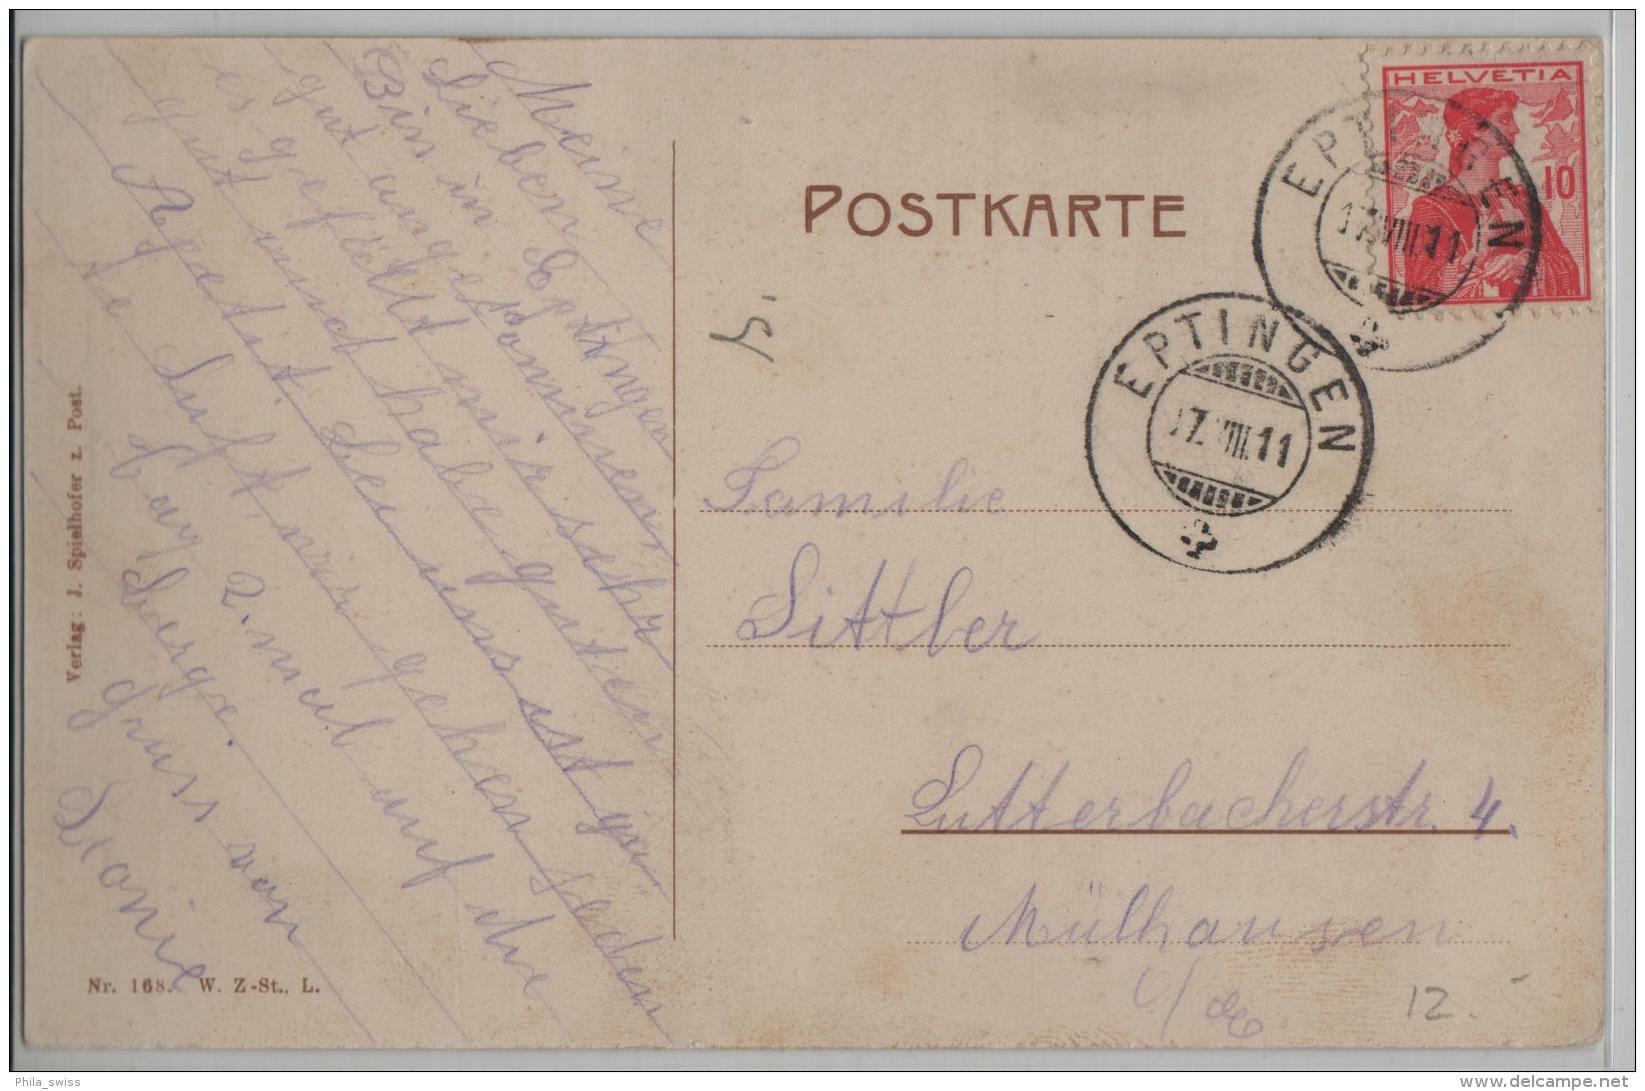 Meine
Lieben
Bin in Eptingen
gut angekommen,
es gefällt mir sehr
gut und habe guten
Apetit bei uns ist gu
te Luft, wir gehen jeden
Tag 2. mal auf die
Berge.
Gruss von
Leonie
POSTKARTE
HELVETIA
10
EPTINGEN
17.VIII.11
EPTINGEN
17.VIII.11
Familie
Sittler
Lutterbacherstr. 4.
Mülhausen
12.
Verlag: J. Spielhofer z. Post.
Nr. 168. W. Z-St., L.
Phila_swiss
www.delcampe.net